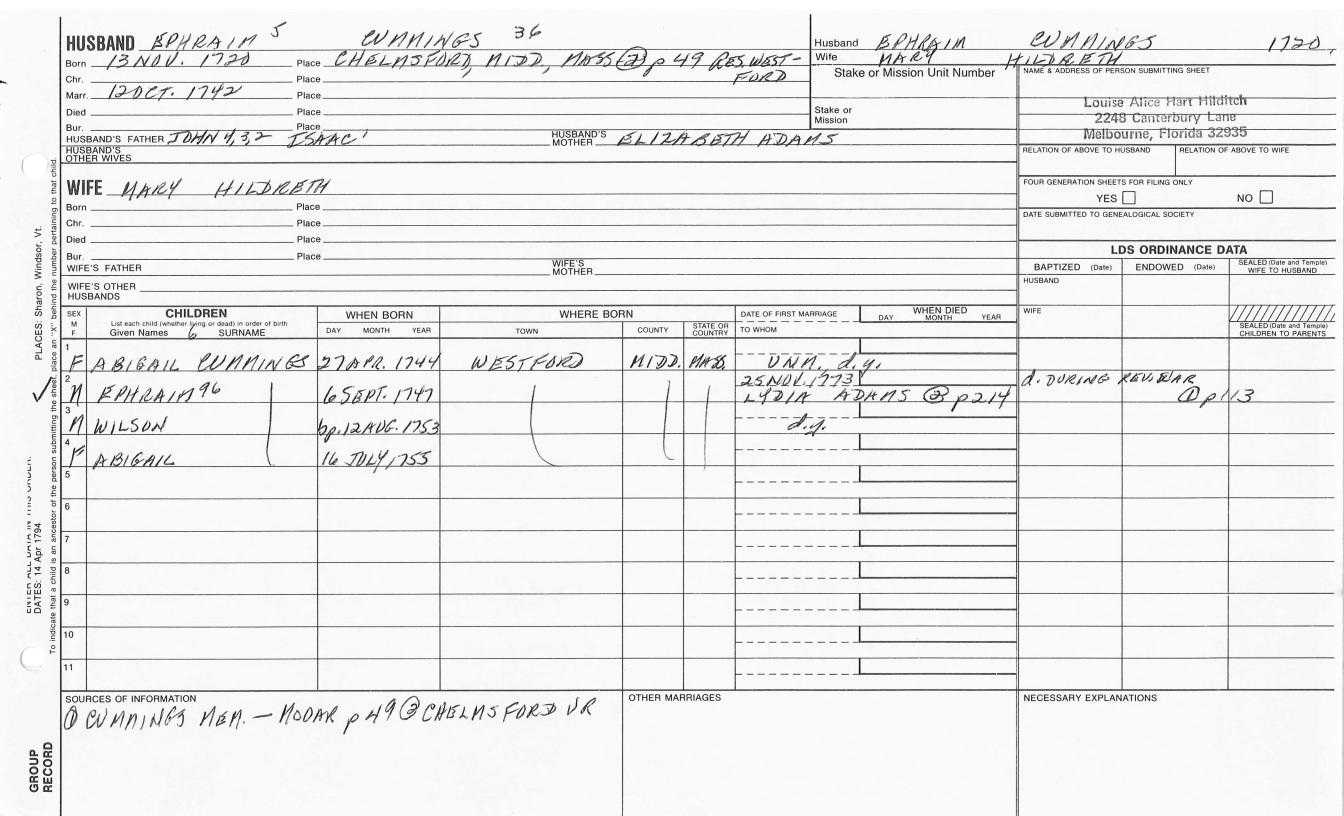 HUSBAND EPHRAIM 5 CUMMINGS 36
Born 13 NOV. 1720 Place CHELMSFORD, MIDD, MASS ② p 49 RES. WEST-
FORD
Chr. Place
Marr. 12 OCT. 1742 Place
Died Place
Bur. Place
HUSBAND'S FATHER JOHN 4,3,2 ISAAC 1 HUSBAND'S MOTHER ELIZABETH ADAMS
HUSBAND'S OTHER WIVES
Husband EPHRAIM CUMMINGS 1720
Wife MARY HILDRETH
Stake or Mission Unit Number
Stake or
Mission
NAME & ADDRESS OF PERSON SUBMITTING SHEET
Louise Alice Hart Hilditch
2248 Canterbury Lane
Melbourne, Florida 32935
RELATION OF ABOVE TO HUSBAND RELATION OF ABOVE TO WIFE
FOUR GENERATION SHEETS FOR FILING ONLY
YES NO
DATE SUBMITTED TO GENEALOGICAL SOCIETY
WIFE MARY HILDRETH
Born Place
Chr. Place
Died Place
Bur. Place
WIFE'S FATHER WIFE'S MOTHER
WIFE'S OTHER
HUSBANDS
LDS ORDINANCE DATA
BAPTIZED (Date) ENDOWED (Date) SEALED (Date and Temple) WIFE TO HUSBAND
HUSBAND
WIFE
SEALED (Date and Temple) CHILDREN TO PARENTS
SEX M F CHILDREN WHEN BORN WHERE BORN DATE OF FIRST MARRIAGE WHEN DIED
List each child (whether living or dead) in order of birth
Given Names 6 SURNAME DAY MONTH YEAR TOWN COUNTY STATE OR COUNTRY TO WHOM DAY MONTH YEAR
1 F ABIGAIL CUMMINGS 27 APR. 1744 WESTFORD MIDD. MASS. UNM. d.y.
2 M EPHRAIM 96 6 SEPT. 1747 25 NOV. 1773 LYDIA ADAMS ② p 214 d. DURING REV. WAR
① p 113
3 M WILSON bp. 12 AUG. 1753 d.y.
4 F ABIGAIL 16 JULY, 1755
5
6
7
8
9
10
11
SOURCES OF INFORMATION OTHER MARRIAGES NECESSARY EXPLANATIONS
① CUMMINGS MEM. — MOOAR p 49 ② CHELMSFORD VR
PLACES: Sharon, Windsor, Vt.
DATES: 14 Apr 1794
To indicate that a child is an ancestor of the person submitting the sheet, place an "X" behind the number pertaining to that child.
GROUP
RECORD